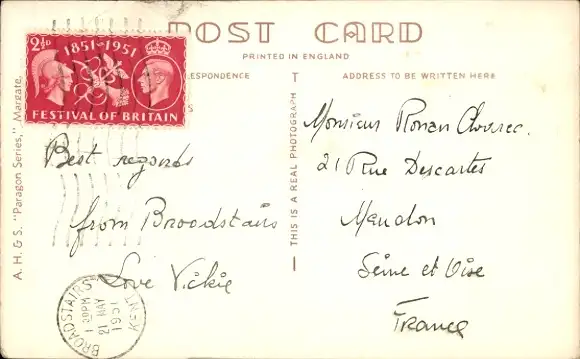 POST CARD
PRINTED IN ENGLAND
RESPONDENCE
ADDRESS TO BE WRITTEN HERE
2½D
1851-1951
FESTIVAL OF BRITAIN
A. H. & S. "Paragon Series," Margate.
THIS IS A REAL PHOTOGRAPH
Best regards
from Broadstairs
Love Vickie
Monsieur Ronan
21 Rue Descartes
Meudon
Seine et Oise
France
BROADSTAIRS KENT
1 30PM
21 MAY
1951